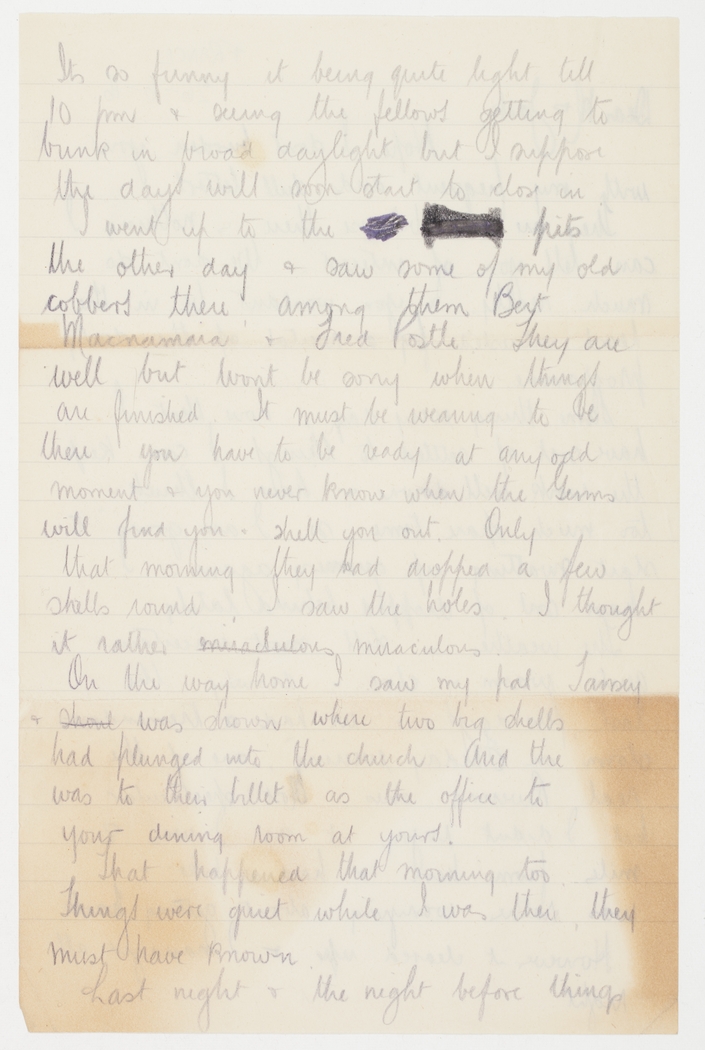 Its so funny it being quite light till
10 pm & seeing the fellows getting to
bunk in broad daylight but I suppose
the days will soon start to close in
I went up to the pits
the other day & saw some of my old
cobbers there among them Bert
Macnamara & Fred Postle. They are
well but wont be sorry when things
are finished. It must be wearing to be
there you have to be ready at any odd
moment & you never know when the Germs
will find you & shell you out. Only
that morning they had dropped a few
shells round I saw the holes. I thought
it rather miraculous miraculous
On the way home I saw my pal Tansey
& was shown where two big shells
had plunged into the church And the
was to their billet as the office to
your dining room at yours!
That happened that morning too.
Things were quiet while I was there they
must have known.
Last night & the night before things